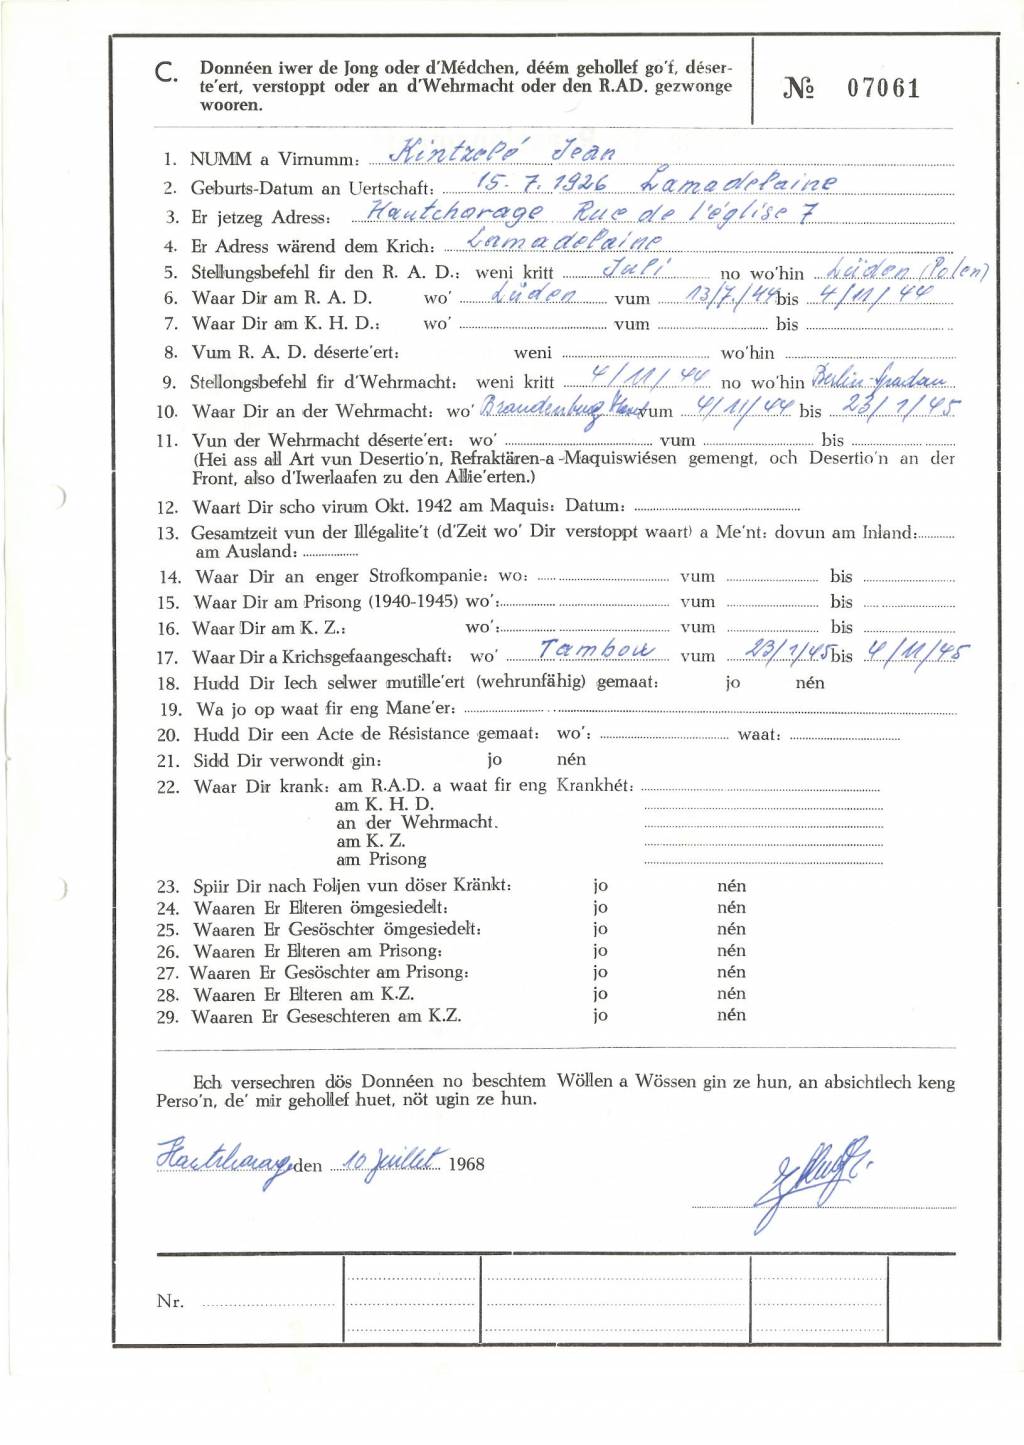 C. Donnéen iwer de Jong oder d'Médchen, déém gehollef go'f, déser-
te'ert, verstoppt oder an d'Wehrmacht oder den R.AD. gezwonge
wooren.
№ 07061
1. NUMM a Virnumm: Kintzelé Jean
2. Geburts-Datum an Uertschaft: 15. 7. 1926 Lamadelaine
3. Er jetzeg Adress: Hautcharage Rue de l'église 7
4. Er Adress wärend dem Krich: Lamadelaine
5. Stellungsbefehl fir den R. A. D.: weni kritt Juli no wo'hin Lüden (Polen)
6. Waar Dir am R. A. D. wo' Lüden vum 13/7./44 bis 4/11/44
7. Waar Dir am K. H. D.: wo' vum bis
8. Vum R. A. D. déserte'ert: weni wo'hin
9. Stellongsbefehl fir d'Wehrmacht: weni kritt 4/11/44 no wo'hin Berlin-Spadau
10. Waar Dir an der Wehrmacht: wo' Brandenburg vum 4/11/44 bis 23/1/45
11. Vun der Wehrmacht déserte'ert: wo' vum bis
(Hei ass all Art vun Desertio'n, Refraktären-a-Maquiswiésen gemengt, och Desertio'n an der
Front, also d'Iwerlaafen zu den Allie'erten.)
12. Waart Dir scho virum Okt. 1942 am Maquis: Datum:
13. Gesamtzeit vun der Illégalite't (d'Zeit wo' Dir verstoppt waart) a Me'nt: dovun am Inland:
am Ausland:
14. Waar Dir an enger Strofkompanie: wo: vum bis
15. Waar Dir am Prisong (1940-1945) wo': vum bis
16. Waar Dir am K. Z.: wo': vum bis
17. Waar Dir a Krichsgefaangeschaft: wo' Tambow vum 23/1/45 bis 4/11/45
18. Hudd Dir Iech selwer mutille'ert (wehrunfähig) gemaat: jo nén
19. Wa jo op waat fir eng Mane'er:
20. Hudd Dir een Acte de Résistance gemaat: wo': waat:
21. Sidd Dir verwondt gin: jo nén
22. Waar Dir krank: am R.A.D. a waat fir eng Krankhét:
am K. H. D.
an der Wehrmacht.
am K. Z.
am Prisong
23. Spiir Dir nach Foljen vun döser Kränkt: jo nén
24. Waaren Er Elteren ömgesiedelt: jo nén
25. Waaren Er Gesöschter ömgesiedelt: jo nén
26. Waaren Er Elteren am Prisong: jo nén
27. Waaren Er Gesöschter am Prisong: jo nén
28. Waaren Er Elteren am K.Z. jo nén
29. Waaren Er Geseschteren am K.Z. jo nén
Ech versechren dös Donnéen no beschtem Wöllen a Wössen gin ze hun, an absichtlech keng
Perso'n, de' mir gehollef huet, nöt ugin ze hun.
Hautcharage den 10 Juillet 1968
Nr.